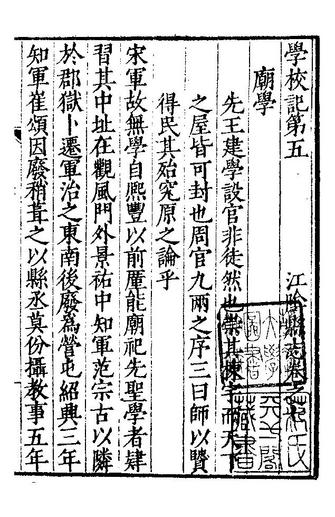 學校記第五
江陰縣志卷之七
廟學
先王建學設官非徒然也崇其棟宇而天下
之屋皆可封也周官九兩之序三曰師以賢
得民其始究原之論乎
宋軍故無學自熙豐以前厪能廟祀先聖學者肄
習其中址在觀風門外景祐中知軍范宗古以隣
於郡獄卜遷軍治之東南後廢為營屯紹興三年
知軍崔頌因廢稍葺之以縣丞莫份攝教事五年